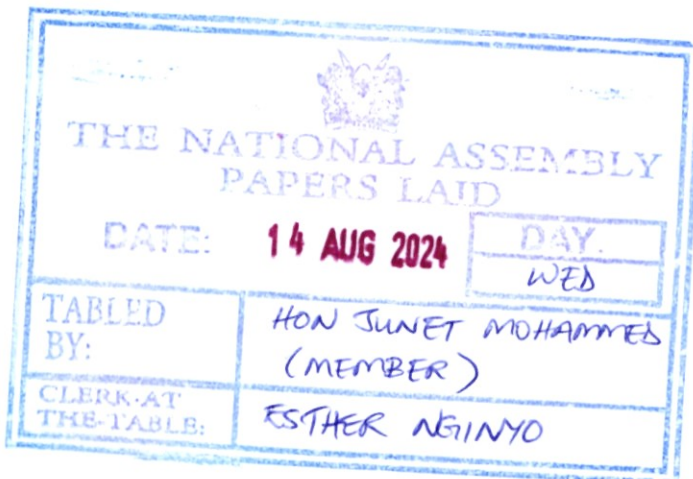 THE NATIONAL ASSEMBLY
PAPERS LAID
DATE: 14 AUG 2024
DAY.
WED
TABLED
BY:
HON JUNET MOHAMMED
(MEMBER)
CLERK-AT
THE-TABLE:
ESTHER NGINYO